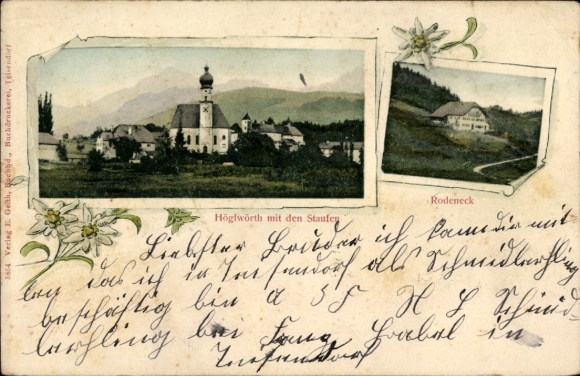 Höglwörth mit den Staufen
Rodeneck
5864 Verlag E. Gehli, Buchhd., Buchdruckerei, Teisendorf
Liebster Bruder ich kann dir mit-
len das ich in Teisendorf als Schmidlerhling
beschäftig bin a S F N L Schmid
lerhling bei Franz Habel in
Teisendorf